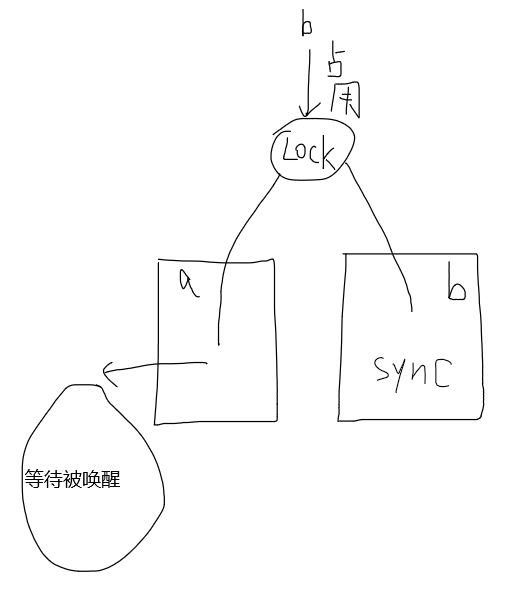 b
占用
Lock
a
b
sync
等待被唤醒